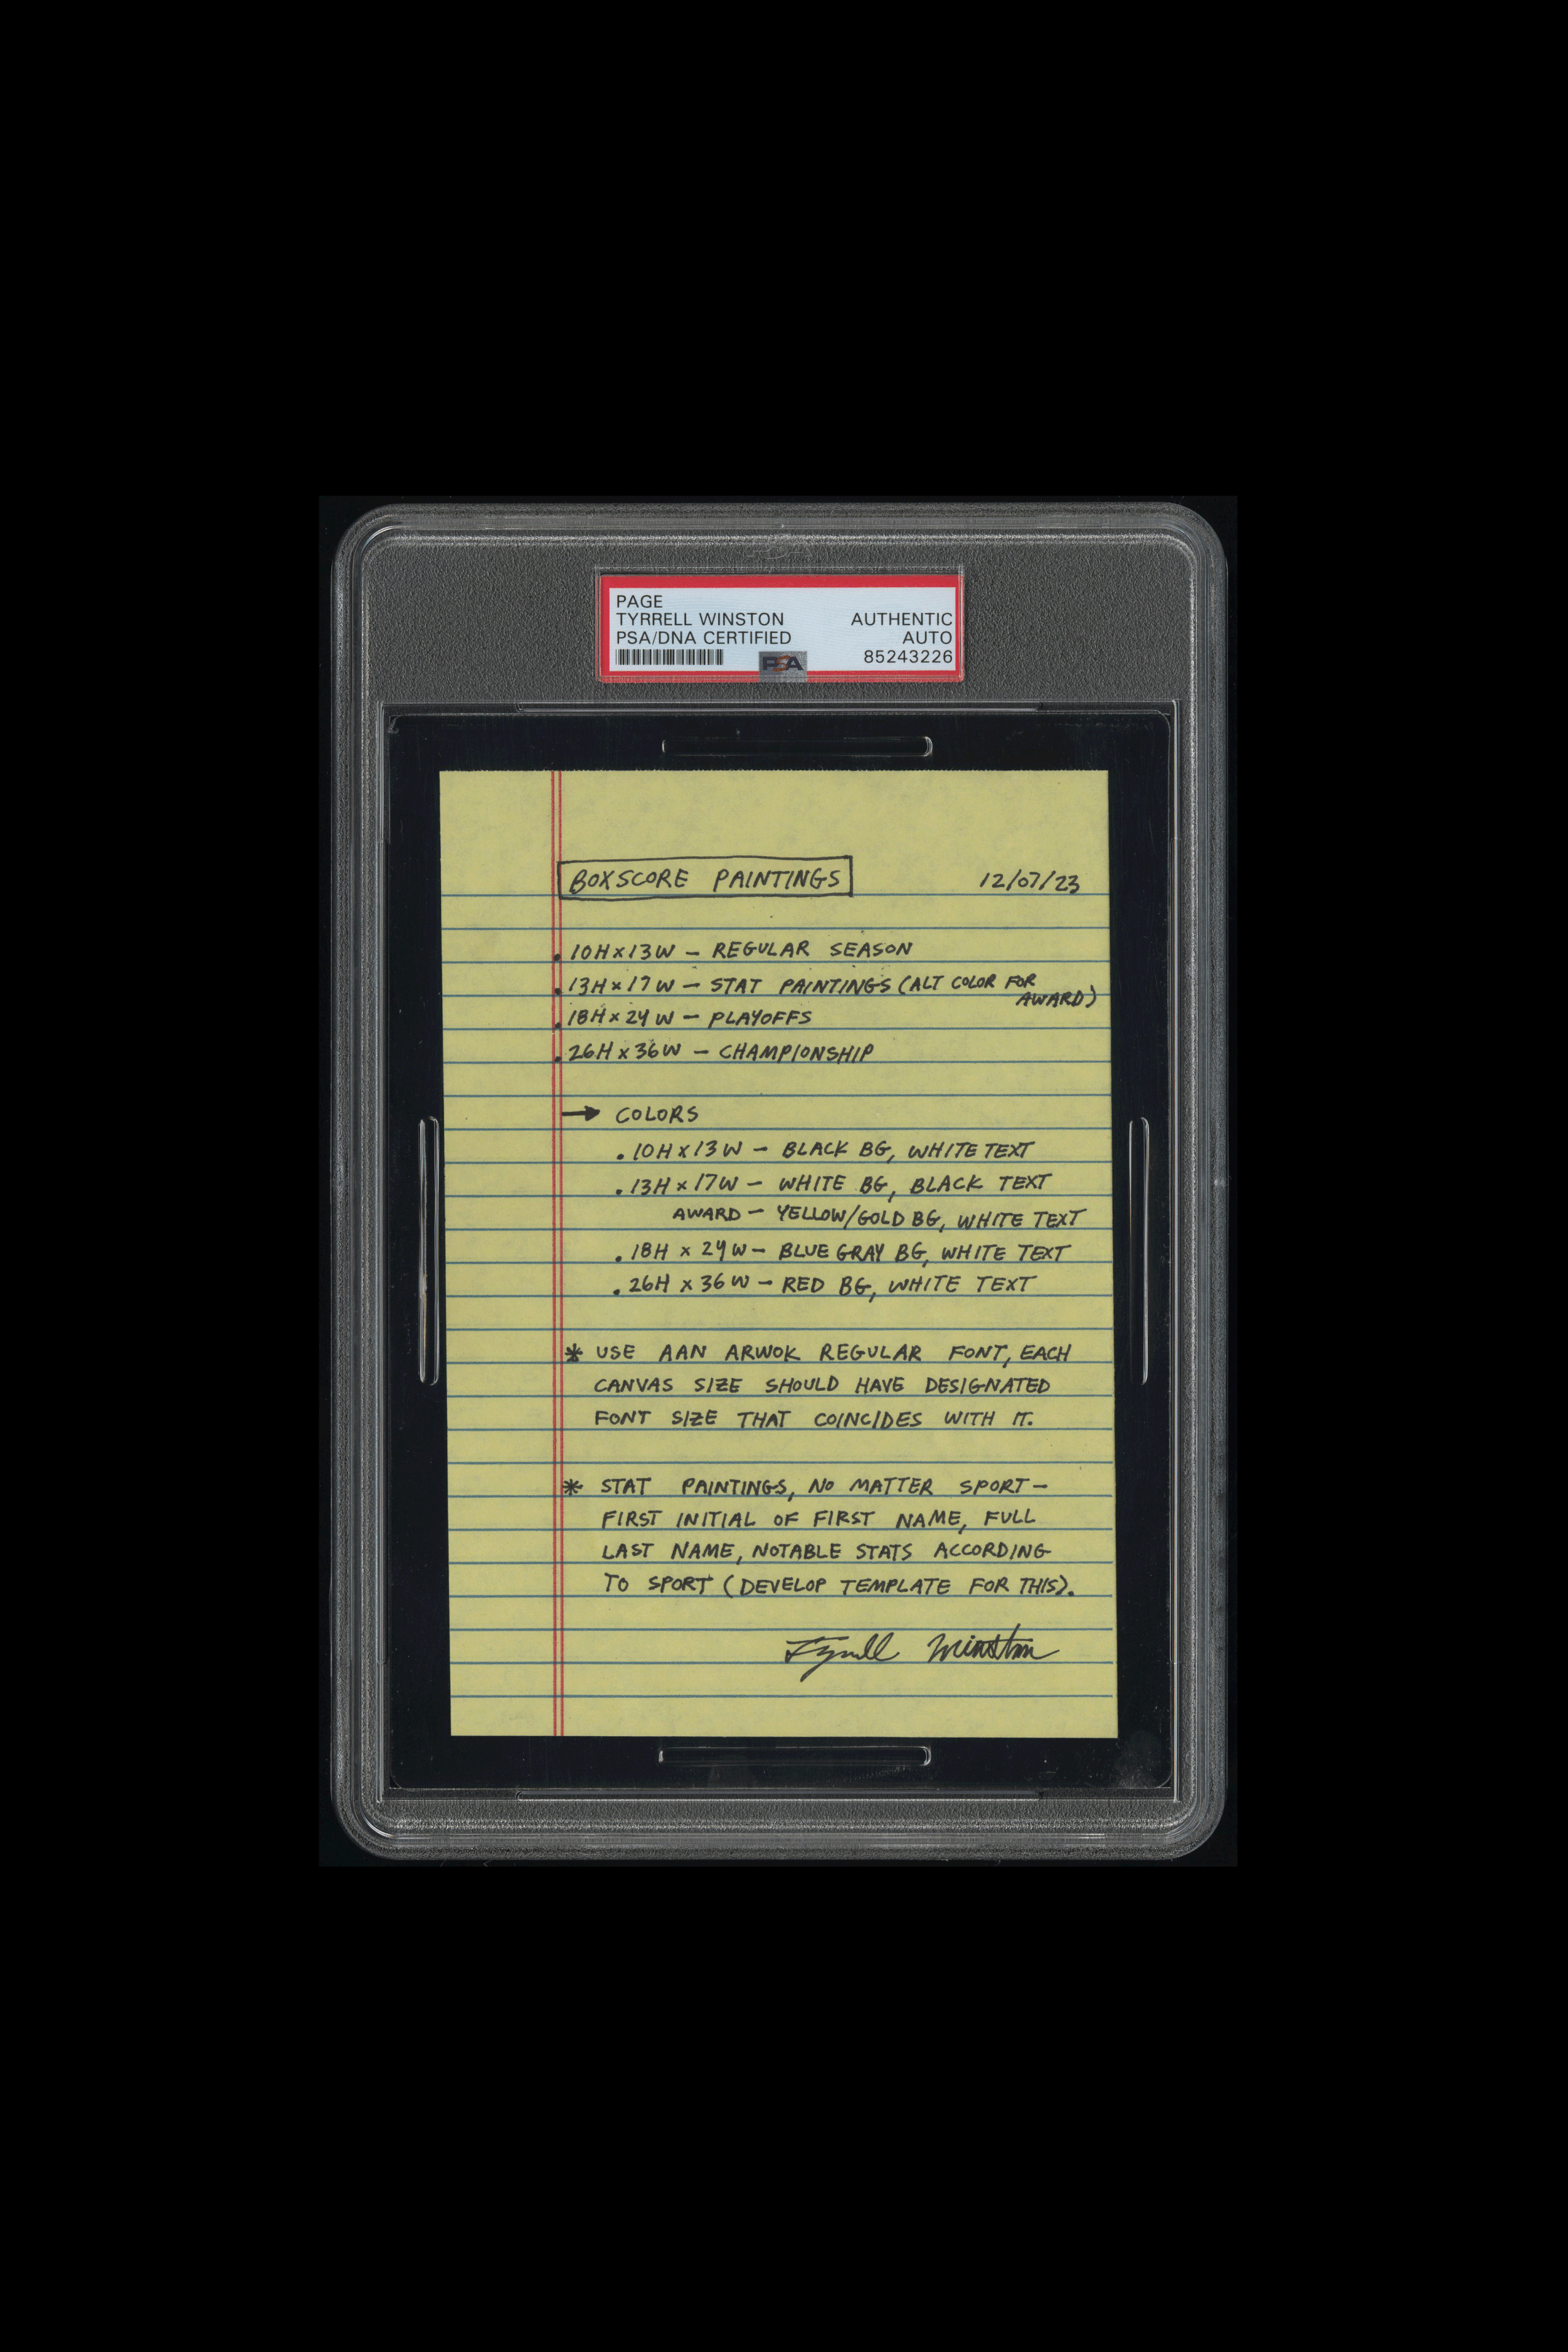 PAGE
TYRRELL WINSTON AUTHENTIC
PSA/DNA CERTIFIED AUTO
PSA 85243226
BOXSCORE PAINTINGS 12/07/23
. 10H x 13W - REGULAR SEASON
. 13H x 17W - STAT PAINTINGS (ALT COLOR FOR
AWARD)
. 18H x 24W - PLAYOFFS
. 26H x 36W - CHAMPIONSHIP
→ COLORS
. 10H x 13W - BLACK BG, WHITE TEXT
. 13H x 17W - WHITE BG, BLACK TEXT
AWARD - YELLOW/GOLD BG, WHITE TEXT
. 18H x 24W - BLUE GRAY BG, WHITE TEXT
. 26H x 36W - RED BG, WHITE TEXT
* USE AAN ARWOK REGULAR FONT, EACH
CANVAS SIZE SHOULD HAVE DESIGNATED
FONT SIZE THAT COINCIDES WITH IT.
* STAT PAINTINGS, NO MATTER SPORT -
FIRST INITIAL OF FIRST NAME, FULL
LAST NAME, NOTABLE STATS ACCORDING
TO SPORT (DEVELOP TEMPLATE FOR THIS).
Tyrrell Winston